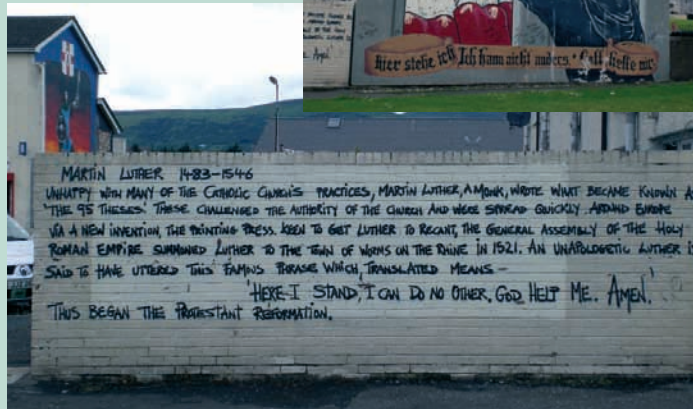 Hier stehe ich Ich kann nicht anders. Gott helfe mir
MARTIN LUTHER 1483-1546
UNHAPPY WITH MANY OF THE CATHOLIC CHURCH'S PRACTICES, MARTIN LUTHER, A MONK, WROTE WHAT BECAME KNOWN AS
'THE 95 THESES'. THESE CHALLENGED THE AUTHORITY OF THE CHURCH AND WERE SPREAD QUICKLY AROUND EUROPE
VIA A NEW INVENTION, THE PRINTING PRESS. KEEN TO GET LUTHER TO RECANT, THE GENERAL ASSEMBLY OF THE HOLY
ROMAN EMPIRE SUMMONED LUTHER TO THE TOWN OF WORMS ON THE RHINE IN 1521. AN UNAPOLOGETIC LUTHER IS
SAID TO HAVE UTTERED THIS FAMOUS PHRASE WHICH, TRANSLATED MEANS -
'HERE I STAND, I CAN DO NO OTHER. GOD HELP ME. AMEN.'
THUS BEGAN THE PROTESTANT REFORMATION.